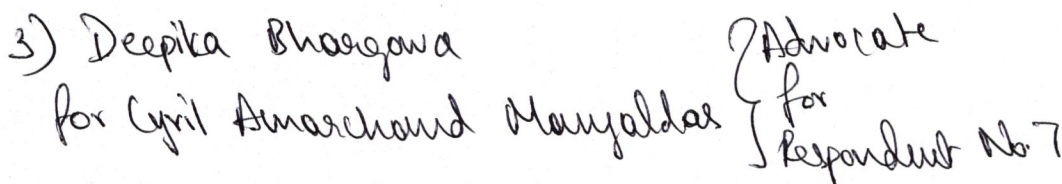 3) Deepika Bhargava
for Cyril Amarchand Mangaldas
} Advocate
for
Respondent No. 7